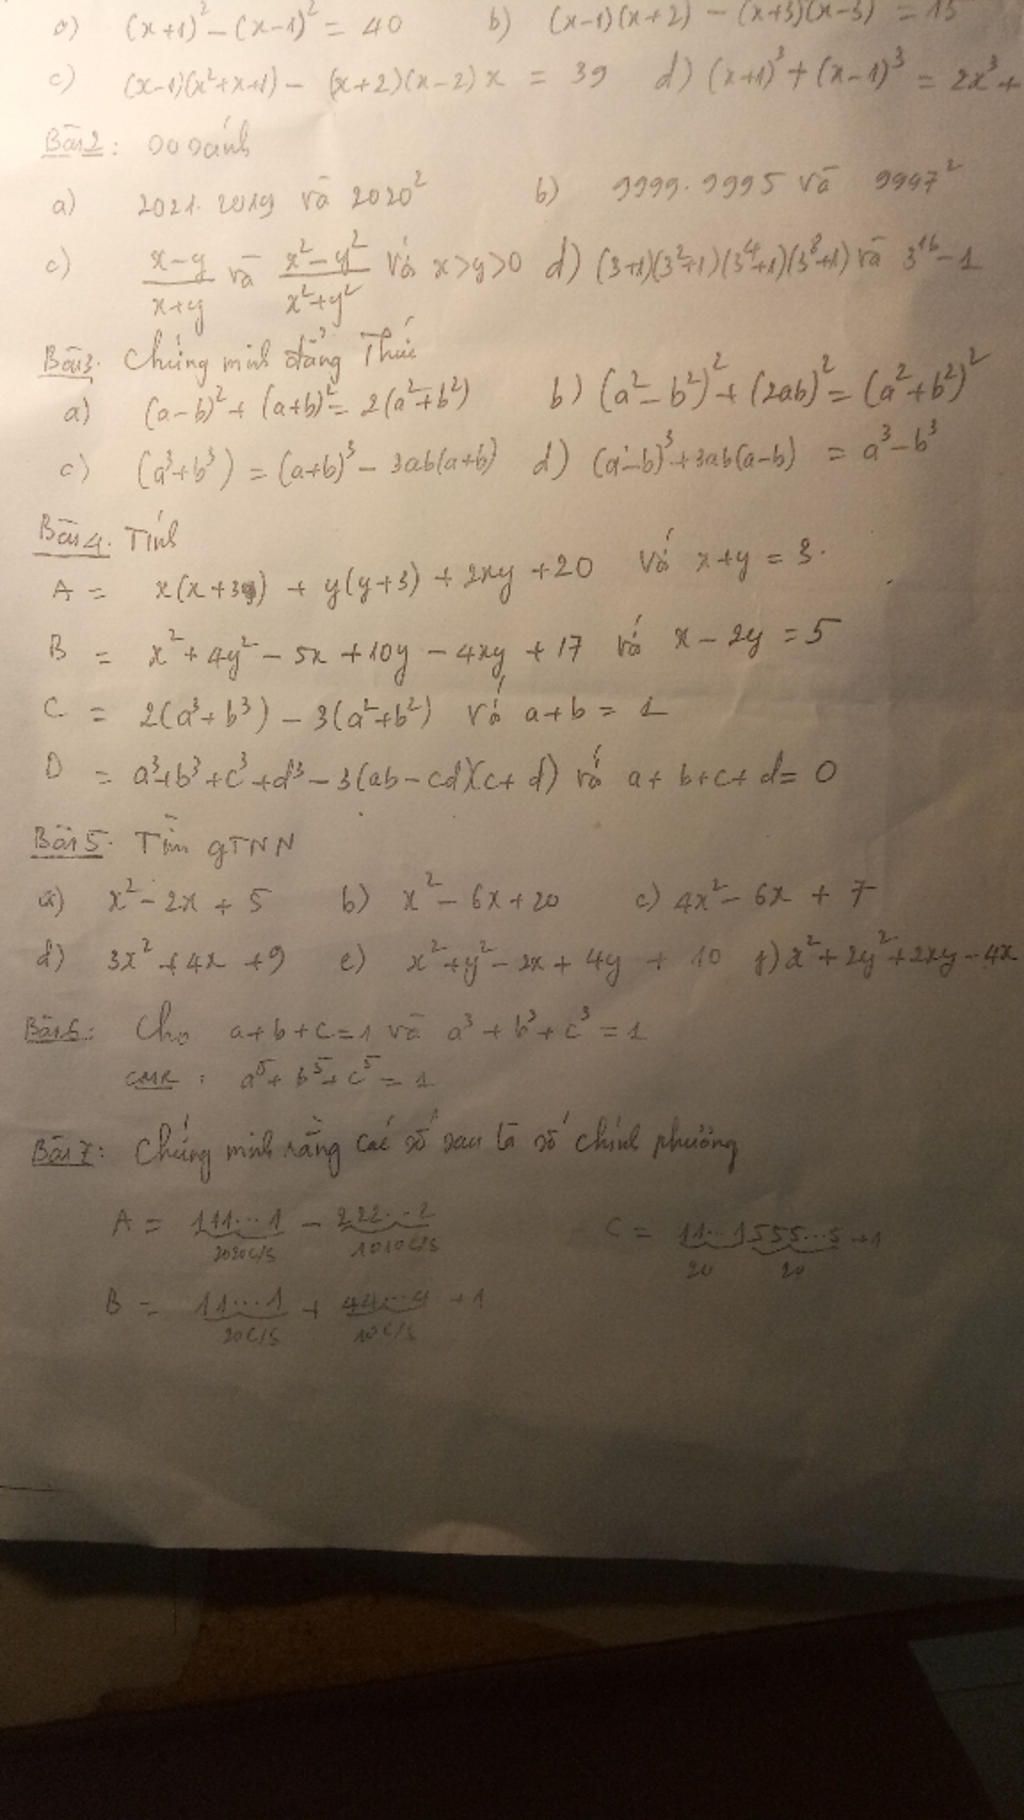 a) (x+1)² - (x-1)² = 40 b) (x-1)(x+2) - (x+3)(x-3) = 15
c) (x-1)(x²+x+1) - (x+2)(x-2)x = 39 d) (x+1)³ + (x-1)³ = 2x³ +
Bài 2: So sánh
a) 2021.2019 và 2020² b) 9999.9995 và 9997²
c) (x-y)/(x+y) và (x²-y²)/(x²+y²) với x>y>0 d) (3+1)(3²+1)(3⁴+1)(3⁸+1) và 3¹⁶-1
Bài 3. Chứng minh đẳng Thức
a) (a-b)² + (a+b)² = 2(a²+b²) b) (a²-b²)² + (2ab)² = (a²+b²)²
c) (a³+b³) = (a+b)³ - 3ab(a+b) d) (a-b)³+3ab(a-b) = a³-b³
Bài 4. Tính
A = x(x+3) + y(y+3) + 2xy + 20 với x+y = 3.
B = x² + 4y² - 5x + 10y - 4xy + 17 với x - 2y = 5
C = 2(a³+b³) - 3(a²+b²) với a+b = 1
D = a³+b³+c³+d³ - 3(ab-cd)(c+d) với a+b+c+d = 0
Bài 5. Tìm GTNN
a) x² - 2x + 5 b) x² - 6x + 20 c) 4x² - 6x + 7
d) 3x² + 4x + 9 e) x² + y² - 2x + 4y + 10 f) x² + 2y² + 2xy - 4x
Bài 6: Cho a+b+c=1 và a³+b³+c³=1
CMR: a⁵+b⁵+c⁵=1
Bài 7: Chứng minh rằng các số sau là số chính phương
A = 111...1 - 222...2 C = 11...1555...5 + 1
2020 c/s 1010 c/s 20 20
B = 11...1 + 44...4 + 1
20 c/s 10 c/s